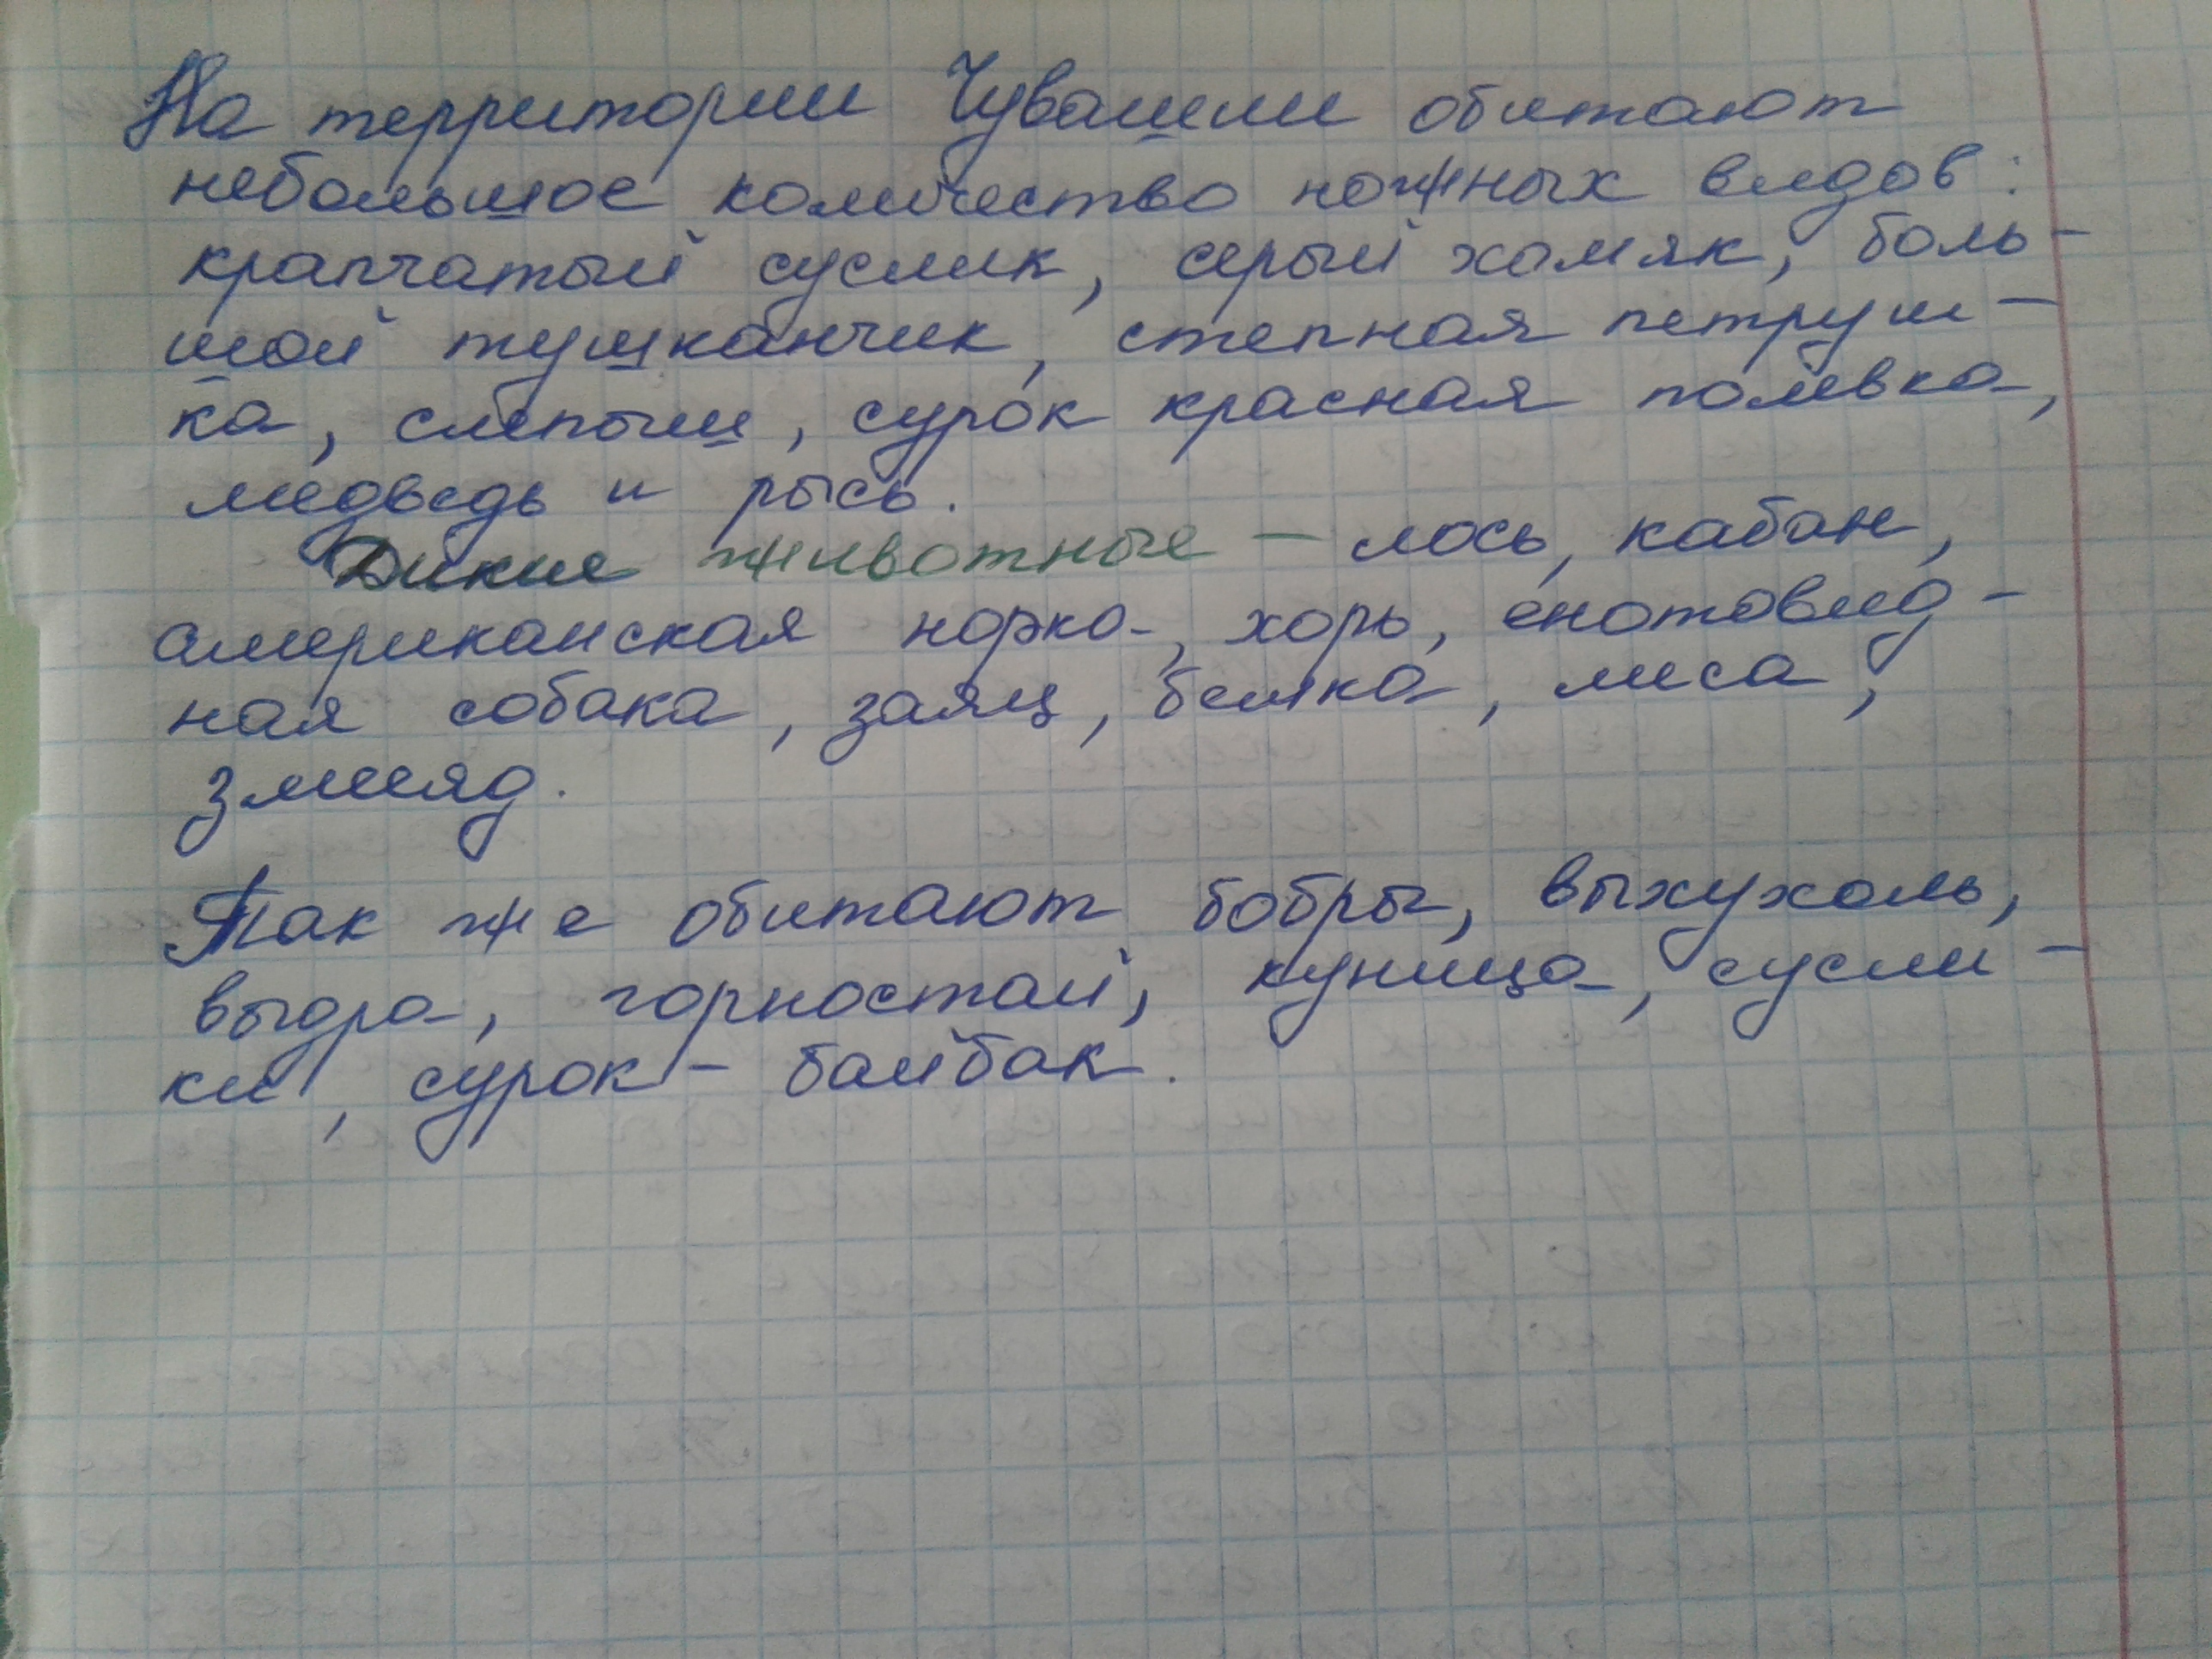 На территории Чувашии обитают
небольшое количество ножных видов:
крапчатый суслик, серый хомяк, боль-
шой тушканчик, степная петруш-
ка, слепыш, сурок красная полевка,
медведь и рысь.
Дикие животные - лось, кабан,
американская норка, хорь, енотовид-
ная собака, заяц, белка, лиса,
змеяд.
Так же обитают бобры, выхухоль,
выдра, горностай, куница, сусли-
ки, сурок - байбак.